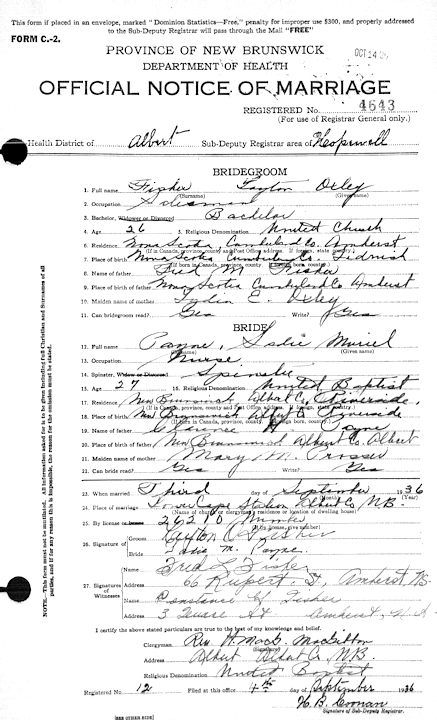 This form if placed in an envelope, marked "Dominion Statistics—Free," penalty for improper use $300, and properly addressed
to the Sub-Deputy Registrar will pass through the Mail "FREE"
FORM C.-2.
PROVINCE OF NEW BRUNSWICK
DEPARTMENT OF HEALTH
OCT 14
OFFICIAL NOTICE OF MARRIAGE
REGISTERED No. 4643
(For use of Registrar General only.)
Health District of Albert Sub-Deputy Registrar area of Hopewell
BRIDEGROOM
1. Full name Fisher Oxley
(Surname) (Given name)
2. Occupation Salesman
3. Bachelor, Widower or Divorced Bachelor
4. Age 26 5. Religious Denomination United Church
6. Residence Nova Scotia Cumberland Co. Amherst
(If in Canada, province, county and Post Office address. If foreign, state country.)
7. Place of birth Nova Scotia Cumberland Co. Tidnish
(If in Canada, province, county. If foreign, state country.)
8. Name of father Fred M. Fisher
9. Place of birth of father Nova Scotia Cumberland Co. Amherst
10. Maiden name of mother E. Oxley
11. Can bridegroom read? Yes Write? Yes
BRIDE
12. Full name Payne, Sadie Muriel
(Surname) (Given name)
13. Occupation Nurse
14. Spinster, Widow or Divorced Spinster
15. Age 27 16. Religious Denomination United Baptist
17. Residence New Brunswick Albert Co. Riverside
(If in Canada, province, county and Post Office address. If foreign, state country.)
18. Place of birth New Brunswick Albert Co. Riverside
(If in Canada, province, county. If foreign, state country.)
19. Name of father Payne
20. Place of birth of father New Brunswick Albert Co. Albert
21. Maiden name of mother Mary M. Prosser
22. Can bride read? Yes Write? Yes
23. When married Third day of September 1936
(Year)
24. Place of marriage Lower Cape Station Albert Co N.B.
(Name of church or clergyman's residence or location of dwelling house)
25. By license or banns 26210
(If by license, give number)
26. Signature of Groom Fisher
Bride Sadie M. Payne.
27. Signatures of Witnesses
Name Fred L Fisher
Address 66 Rupert St, Amherst, N.S
Name Constance Fisher
Address 3 St Amherst, N.S.
I certify the above stated particulars are true to the best of my knowledge and belief.
Clergyman Rev. H. MacG.
Address Albert Albert Co, N.B.
Religious Denomination United Baptist
Registered No. 12 Filed at this office 4th day of September 1936
H. B. Coonan
Signature of Sub-Deputy Registrar.
[SEE OTHER SIDE]
NOTE.—This form must not be mutilated. All information asked for is to be given including full Christian and Surnames of all
parties, and if for any reason this is impossible, the reason for the omission must be stated.